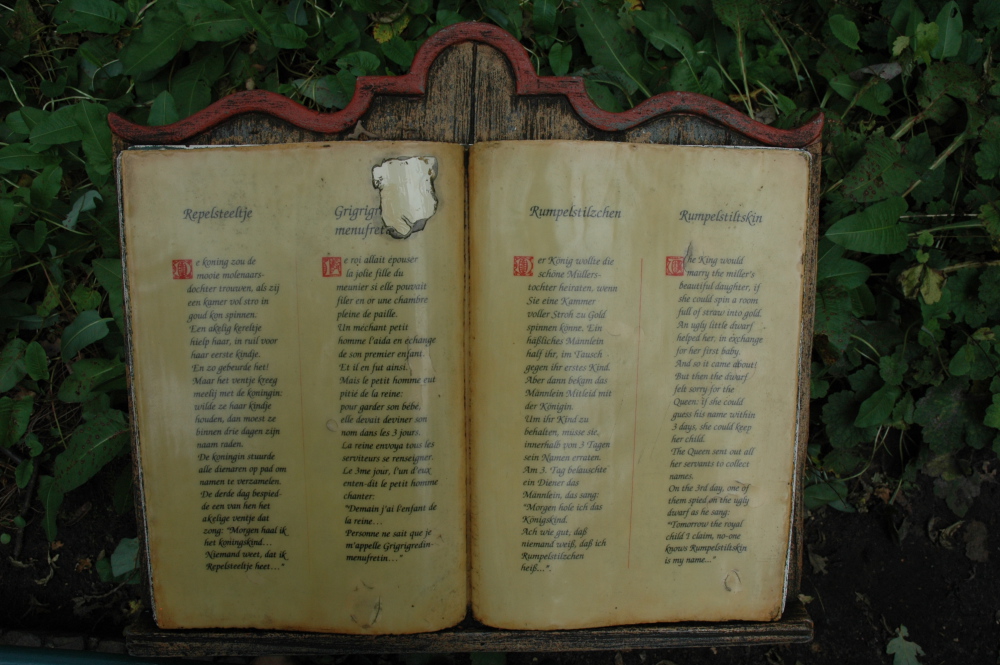 Repelsteeltje
De koning zou de
mooie molenaars-
dochter trouwen, als zij
een kamer vol stro in
goud kon spinnen.
Een akelig kereltje
hielp haar, in ruil voor
haar eerste kindje.
En zo gebeurde het!
Maar het ventje kreeg
meelij met de koningin:
wilde ze haar kindje
houden, dan moest ze
binnen drie dagen zijn
naam raden.
De koningin stuurde
alle dienaren op pad om
namen te verzamelen.
De derde dag bespied-
de een van hen het
akelige ventje dat
zong: "Morgen haal ik
het koningskind...
Niemand weet, dat ik
Repelsteeltje heet..."
menufret
Le roi allait épouser
la jolie fille du
meunier si elle pouvait
filer en or une chambre
pleine de paille.
Un méchant petit
homme l'aida en echange
de son premier enfant.
Et il en fut ainsi.
Mais le petit homme eut
pitié de la reine:
pour garder son bébé,
elle devait deviner son
nom dans les 3 jours.
La reine envoya tous les
serviteurs se renseigner.
Le 3me jour, l'un d'eux
enten-dit le petit homme
chanter:
"Demain j'ai l'enfant de
la reine...
Personne ne sait que je
m'appelle Grigrigredin-
menufretin..."
Rumpelstilzchen
Der König wollte die
schöne Müllers-
tochter heiraten, wenn
Sie eine Kammer
voller Stroh zu Gold
spinnen könne. Ein
häßliches Männlein
half ihr, im Tausch
gegen ihr erstes Kind.
Aber dann bekam das
Männlein Mitleid mit
der Königin.
Um ihr Kind zu
behalten, müsse sie,
innerhalb von 3 Tagen
sein Namen erraten.
Am 3. Tag belauschte
ein Diener das
Männlein, das sang:
"Morgen hole ich das
Königskind.
Ach wie gut, daß
niemand weiß, daß ich
Rumpelstilzchen
heiß...".
Rumpelstiltskin
The King would
marry the miller's
beautiful daughter, if
she could spin a room
full of straw into gold.
An ugly little dwarf
helped her, in exchange
for her first baby.
And so it came about!
But then the dwarf
felt sorry for the
Queen: if she could
guess his name within
3 days, she could keep
her child.
The Queen sent out all
her servants to collect
names.
On the 3rd day, one of
them spied on the ugly
dwarf as he sang:
"Tomorrow the royal
child I claim, no-one
knows Rumpelstiltskin
is my name..."